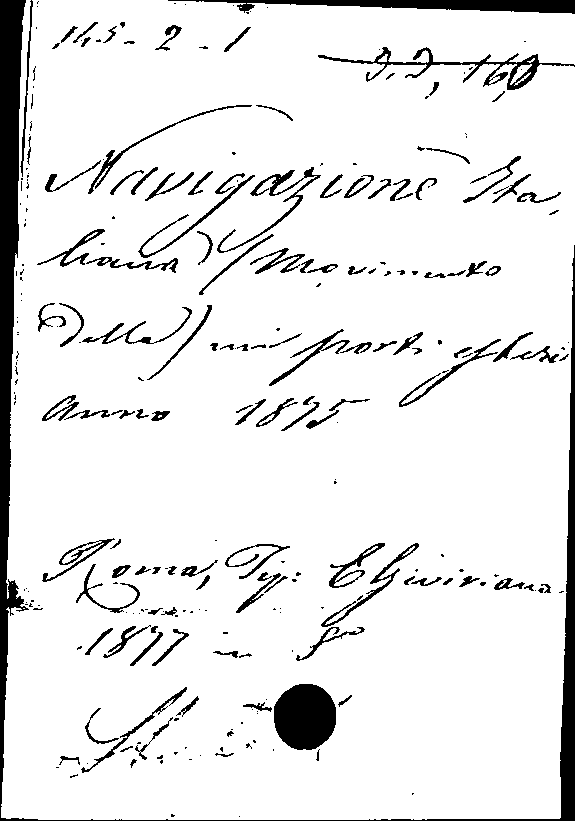 145-2-1
D.D, 160
Navigazione Ita,
liana (Movimento
della) nei porti esteri
anno 1875
Roma, Tip: Elzeviriana
1877 in 8º